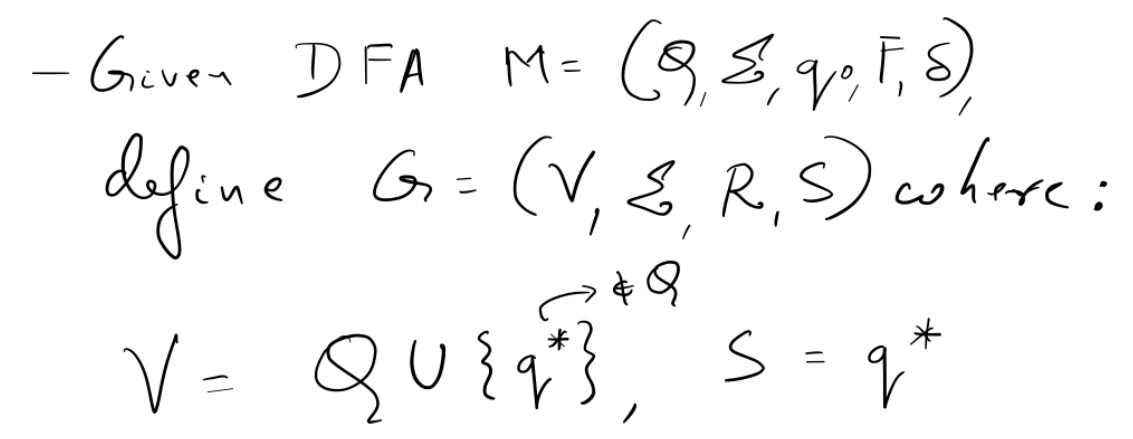 - Given DFA M = (Q, Σ, q₀, F, δ),
define G = (V, Σ, R, S) where:
∉ Q
V = Q ∪ {q*}, S = q*